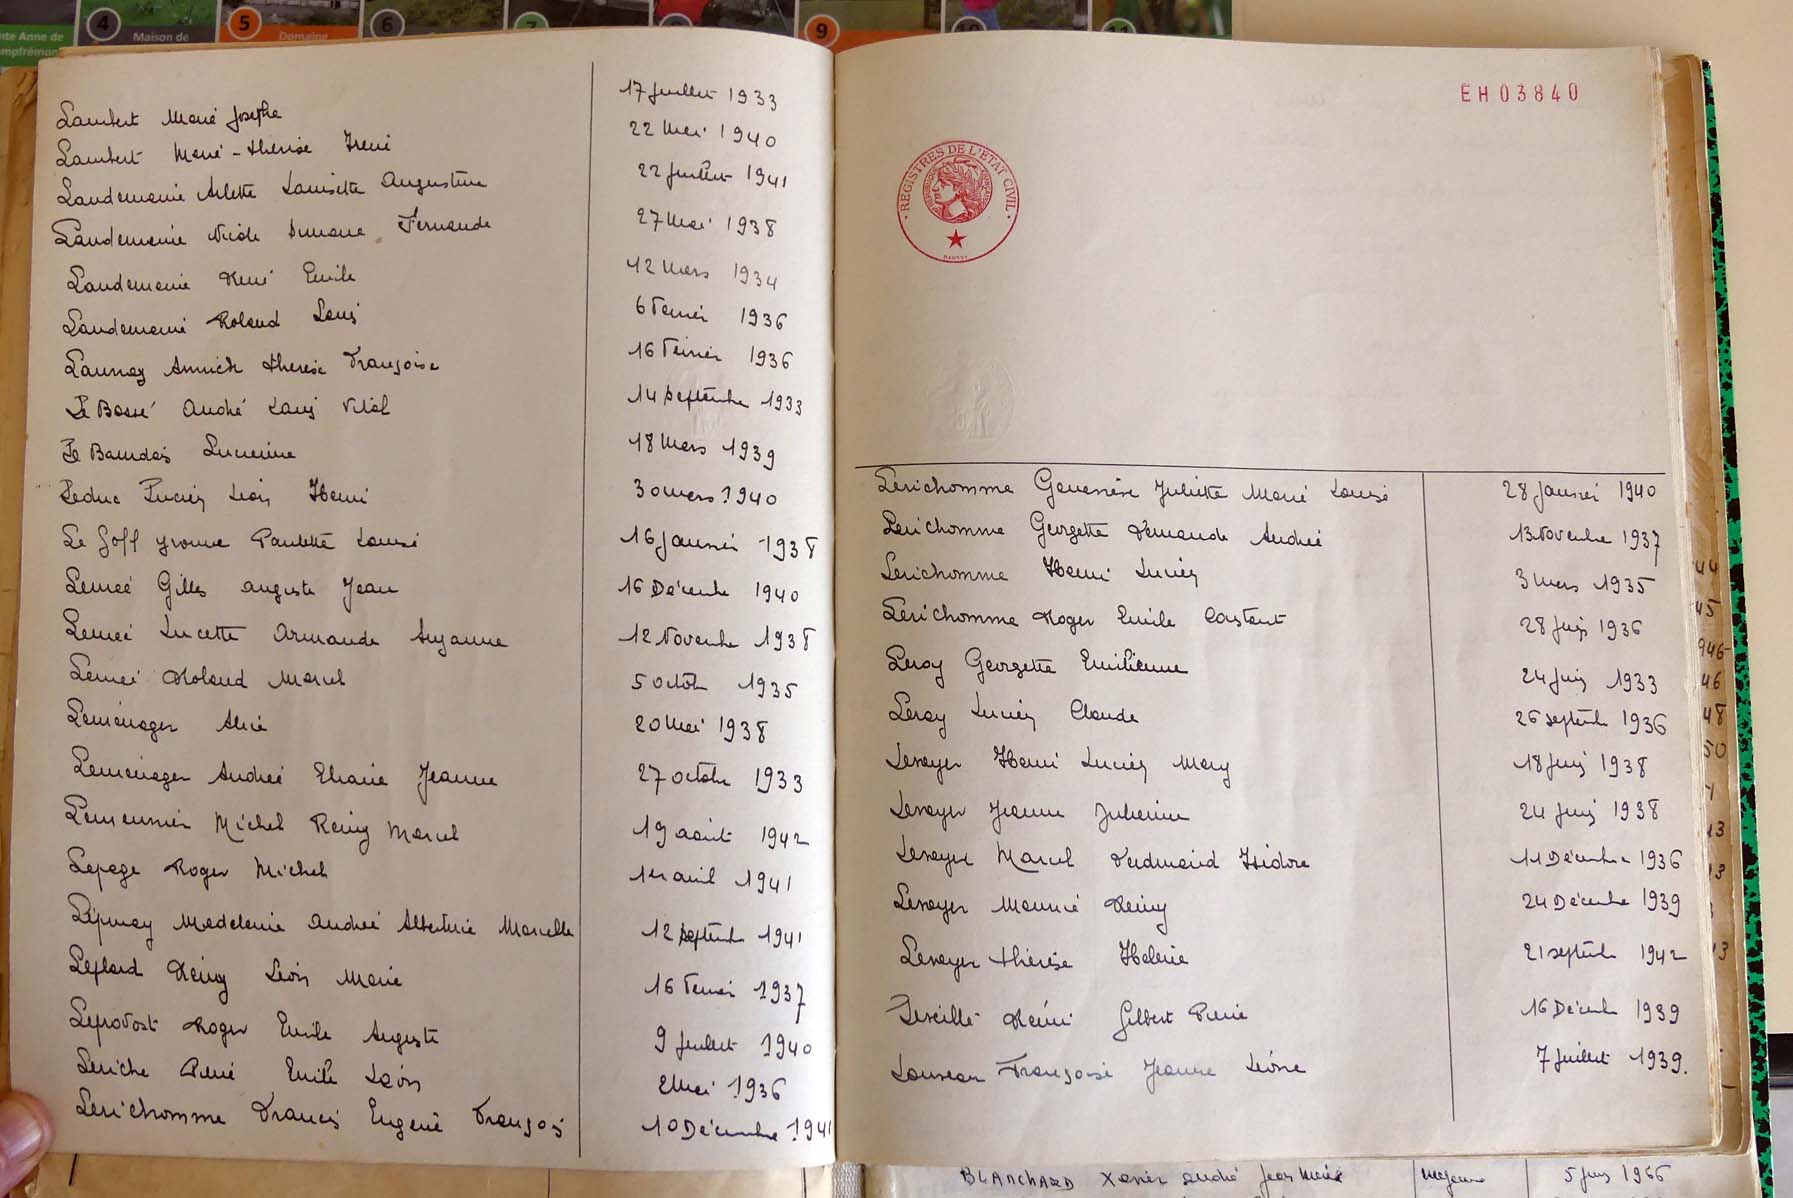 4 Maison de
5 Domaine
6
7
9
10
11
nte Anne de
ampfrémon
Lambert Marie Josephe 17 juillet 1933
Lambert Marie-thérèse Irène 22 Mai 1940
Landemaine Arlette Louisette Augustine 22 juillet 1941
Landemaine Nicole Simone Fernande 27 Mai 1938
Landemaine René Emile 12 Mars 1934
Landemaine Roland Louis 6 Février 1936
Launay Annick thérèse Françoise 16 Février 1936
Le Bossé André Louis Vital 14 septembre 1933
Le Baudais Lucienne 18 Mars 1939
Leduc Lucien Léon Henri 30 mars 1940
Le Goff Yvonne Paulette Louise 16 janvier 1938
Lemée Gilles Auguste Jean 16 Décembre 1940
Lemée Lucette Armande Suzanne 12 Novembre 1938
Lemée Roland Marcel 5 octobre 1935
Leménager Alice 20 Mai 1938
Leménager Andrée Eliane Jeanne 27 octobre 1933
Lemeunier Michel Rémy Marcel 19 août 1942
Lepage Roger Michel 1er avril 1941
Lépinay Madeleine Andrée Albertine Marcelle 12 septembre 1941
Leplard Rémy Léon Marie 16 Février 1937
Leprovost Roger Emile Auguste 9 juillet 1940
Leriche René Emile Léon 2 Mai 1936
Lerichomme Francis Eugène François 10 Décembre 1941
EH03840
REGISTRES DE L'ETAT CIVIL
REPUBLIQUE FRANCAISE
Lerichomme Geneviève Juliette Marie Louise 28 janvier 1940
Lerichomme Georgette Fernande Andrée 13 Novembre 1937
Lerichomme Henri Lucien 3 mars 1935
Lerichomme Roger Emile Constant 28 juin 1936
Leroy Georgette Emilienne 24 juin 1933
Leroy Lucien Claude 26 septembre 1936
Leroyer Henri Lucien Mary 18 juin 1938
Leroyer Jeanne Julienne 24 juin 1938
Leroyer Marcel Ferdinand Isidore 11 Décembre 1936
Leroyer Maurice Rémy 24 Décembre 1939
Leroyer thérèse Hélène 21 septembre 1942
Rémi Gilbert Pierre 16 Décembre 1939
Louveau Françoise Jeanne Léone 7 juillet 1939.
BLANCHARD Xavier André Jean Marie 5 juin 1966